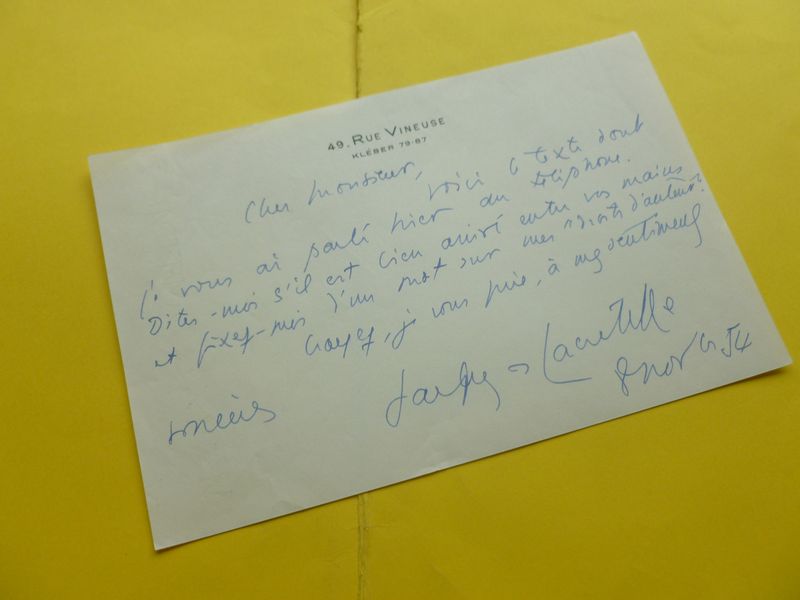 49. RUE VINEUSE
KLÉBER 79-87
Cher Monsieur,
Voici le texte dont
je vous ai parlé hier au téléphone.
Dites-moi s'il est bien arrivé entre vos mains
et fixez-moi d'un mot sur mes "droits d'auteur".
Croyez, je vous prie, à mes sentiments
sincères
Jacques de Lacretelle
8 nov 54